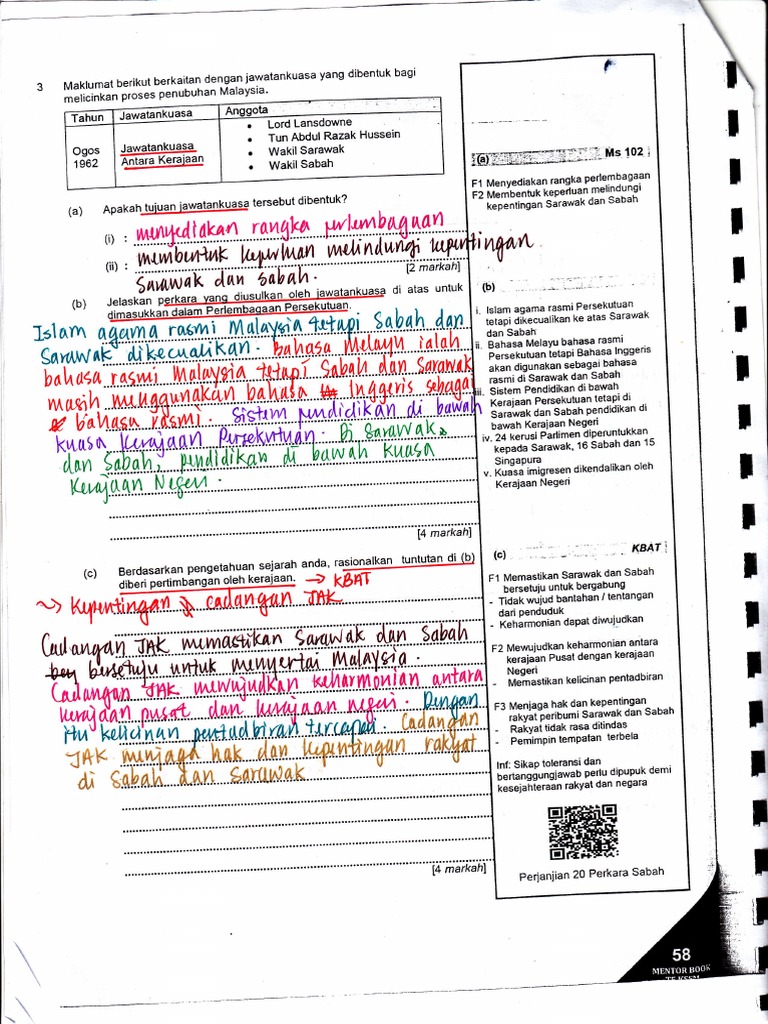 3 Maklumat berikut berkaitan dengan jawatankuasa yang dibentuk bagi
melicinkan proses penubuhan Malaysia.
Tahun Jawatankuasa Anggota
Ogos 1962
Jawatankuasa Antara Kerajaan
• Lord Lansdowne
• Tun Abdul Razak Hussein
• Wakil Sarawak
• Wakil Sabah
(a) Apakah tujuan jawatankuasa tersebut dibentuk?
(i) : menyediakan rangka perlembagaan
(ii) : membentuk keperluan melindungi kepentingan
Sarawak dan Sabah.
[2 markah]
(b) Jelaskan perkara yang diusulkan oleh jawatankuasa di atas untuk
dimasukkan dalam Perlembagaan Persekutuan.
Islam agama rasmi Malaysia tetapi Sabah dan
Sarawak dikecualikan. Bahasa Melayu ialah
bahasa rasmi Malaysia tetapi Sabah dan Sarawak
masih menggunakan bahasa Inggeris sebagai
bahasa rasmi. Sistem pendidikan di bawah
kuasa Kerajaan Persekutuan. Di Sarawak
dan Sabah, pendidikan di bawah kuasa
Kerajaan Negeri.
[4 markah]
(c) Berdasarkan pengetahuan sejarah anda, rasionalkan tuntutan di (b)
diberi pertimbangan oleh kerajaan. → KBAT
~> Kepentingan cadangan JAK
Cadangan JAK memastikan Sarawak dan Sabah
bersetuju untuk menyertai Malaysia.
Cadangan JAK mewujudkan keharmonian antara
kerajaan pusat dan kerajaan negeri. Dengan
itu kelicinan pentadbiran tercapai. Cadangan
JAK menjaga hak dan kepentingan rakyat
di Sabah dan Sarawak
[4 markah]
(a) Ms 102
F1 Menyediakan rangka perlembagaan
F2 Membentuk keperluan melindungi
kepentingan Sarawak dan Sabah
(b)
i. Islam agama rasmi Persekutuan
tetapi dikecualikan ke atas Sarawak
dan Sabah
ii. Bahasa Melayu bahasa rasmi
Persekutuan tetapi Bahasa Inggeris
akan digunakan sebagai bahasa
rasmi di Sarawak dan Sabah
iii. Sistem Pendidikan di bawah
Kerajaan Persekutuan tetapi di
Sarawak dan Sabah pendidikan di
bawah Kerajaan Negeri
iv. 24 kerusi Parlimen diperuntukkan
kepada Sarawak, 16 Sabah dan 15
Singapura
v. Kuasa imigresen dikendalikan oleh
Kerajaan Negeri
(c) KBAT
F1 Memastikan Sarawak dan Sabah
bersetuju untuk bergabung
- Tidak wujud bantahan / tentangan
dari penduduk
- Keharmonian dapat diwujudkan
F2 Mewujudkan keharmonian antara
kerajaan Pusat dengan kerajaan
Negeri
- Memastikan kelicinan pentadbiran
F3 Menjaga hak dan kepentingan
rakyat peribumi Sarawak dan Sabah
- Rakyat tidak rasa ditindas
- Pemimpin tempatan terbela
Inf: Sikap toleransi dan
bertanggungjawab perlu dipupuk demi
kesejahteraan rakyat dan negara
Perjanjian 20 Perkara Sabah
58
MENTOR BOOK